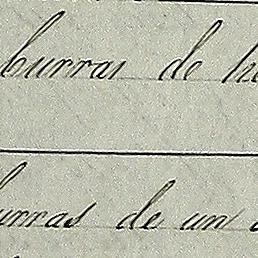 burras de
burras de un